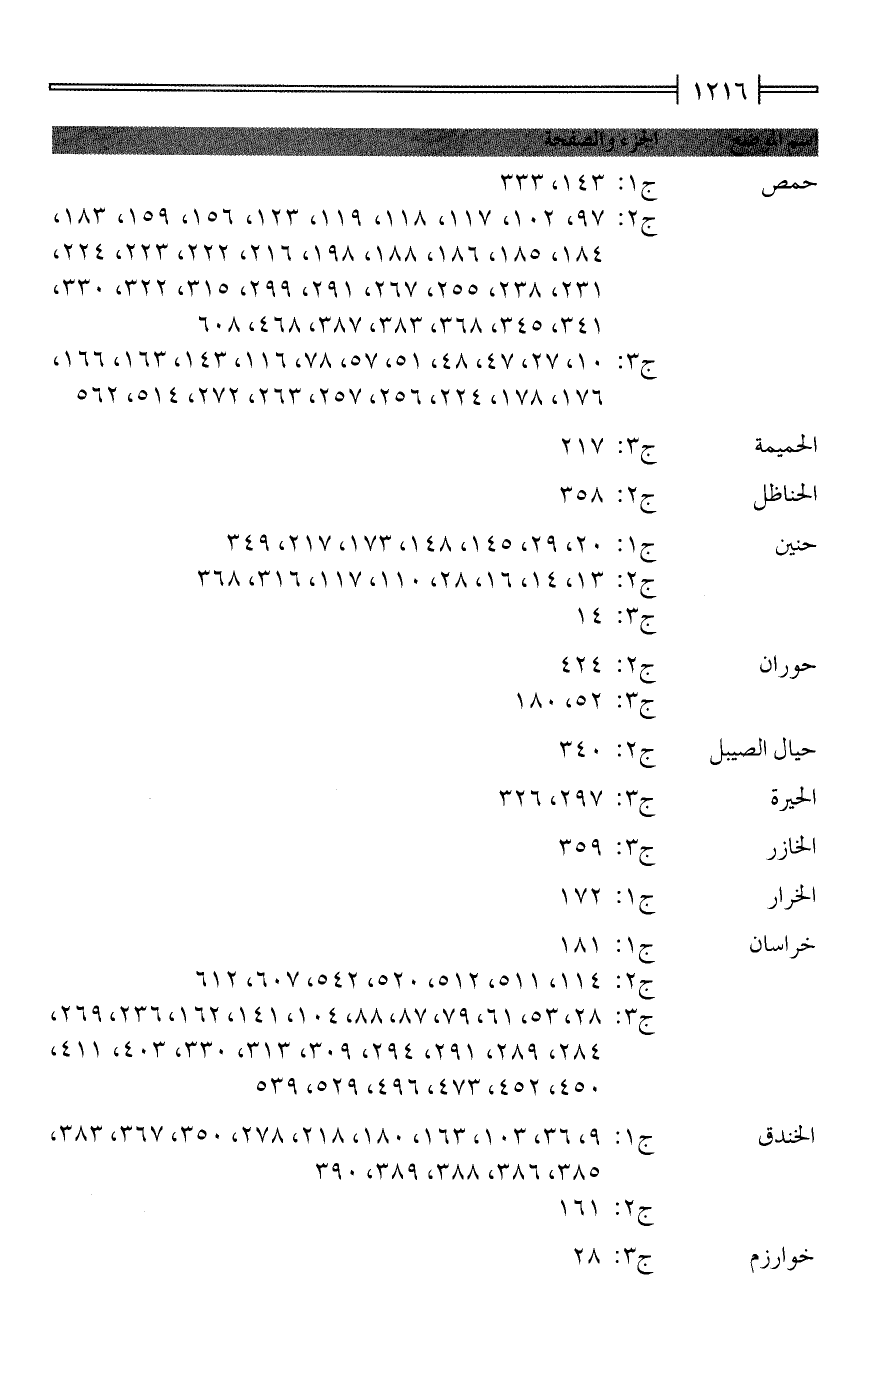 ١٢١٦
اسم الموضع الجزء والصفحة
حمص ج١: ١٤٣، ٣٣٣
ج٢: ٩٧، ١٠٢، ١١٧، ١١٨، ١١٩، ١٢٣، ١٥٦، ١٥٩، ١٨٣،
١٨٤، ١٨٥، ١٨٦، ١٨٨، ١٩٨، ٢١٦، ٢٢٢، ٢٢٣، ٢٢٤،
٢٣١، ٢٣٨، ٢٥٥، ٢٦٧، ٢٩١، ٢٩٩، ٣١٥، ٣٢٢، ٣٣٠،
٣٤١، ٣٤٥، ٣٦٨، ٣٨٣، ٣٨٧، ٤٦٨، ٦٠٨
ج٣: ١٠، ٢٧، ٤٧، ٤٨، ٥١، ٥٧، ٧٨، ١١٦، ١٤٣، ١٦٣، ١٦٦،
١٧٦، ١٧٨، ٢٢٤، ٢٥٦، ٢٥٧، ٢٦٣، ٢٧٢، ٥١٤، ٥٦٢
الحميمة ج٣: ٢١٧
الحناظل ج٢: ٣٥٨
حنين ج١: ٢٠، ٢٩، ١٤٥، ١٤٨، ١٧٣، ٢١٧، ٣٤٩
ج٢: ١٣، ١٤، ١٦، ٢٨، ١١٠، ١١٧، ٣١٦، ٣٦٨
ج٣: ١٤
حوران ج٢: ٤٢٤
ج٣: ٥٢، ١٨٠
حيال الصيبل ج٢: ٣٤٠
الحيرة ج٣: ٢٩٧، ٣٢٦
الخازر ج٣: ٣٥٩
الخرار ج١: ١٧٢
خراسان ج١: ١٨١
ج٢: ١١٤، ٥١١، ٥١٢، ٥٢٠، ٥٤٢، ٦٠٧، ٦١٢
ج٣: ٢٨، ٥٣، ٦١، ٧٩، ٨٧، ٨٨، ١٠٤، ١٤١، ١٦٢، ٢٣٦، ٢٦٩،
٢٨٤، ٢٨٩، ٢٩١، ٢٩٤، ٣٠٩، ٣١٣، ٣٣٠، ٤٠٣، ٤١١،
٤٥٠، ٤٥٢، ٤٧٣، ٤٩٦، ٥٢٩، ٥٣٩
الخندق ج١: ٩، ٣٦، ١٠٣، ١٦٣، ١٨٠، ٢١٨، ٢٧٨، ٣٥٠، ٣٦٧، ٣٨٣،
٣٨٥، ٣٨٦، ٣٨٨، ٣٨٩، ٣٩٠
ج٢: ١٦١
خوارزم ج٣: ٢٨